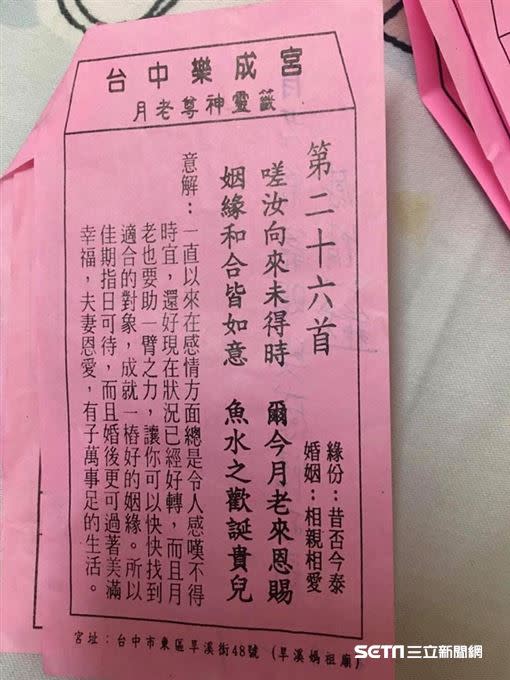 台中樂成宮
月老尊神靈籤
第二十六首
緣份：昔否今泰
婚姻：相親相愛
嗟汝向來未得時　爾今月老來恩賜
姻緣和合皆如意　魚水之歡誕貴兒
意解：一直以來在感情方面總是令人感嘆不得
時宜，還好現在狀況已經好轉，而且月
老也要助一臂之力，讓你可以快快找到
適合的對象，成就一樁好的姻緣。所以
佳期指日可待，而且婚後更可過著美滿
幸福，夫妻恩愛，有子萬事足的生活。
宮址：台中市東區旱溪街48號（旱溪媽祖廟）
SETN三立新聞網